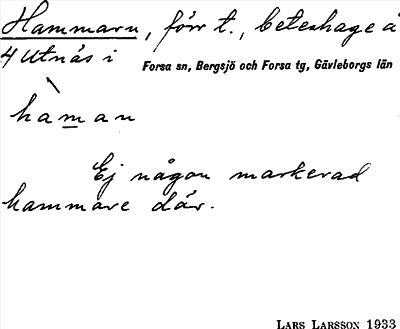 Hammarn, förr t., beteshage å
4 Utnäs i Forsa sn, Bergsjö och Forsa tg, Gävleborgs län
hàman
Ej någon markerad
hammare där.
LARS LARSSON 1933